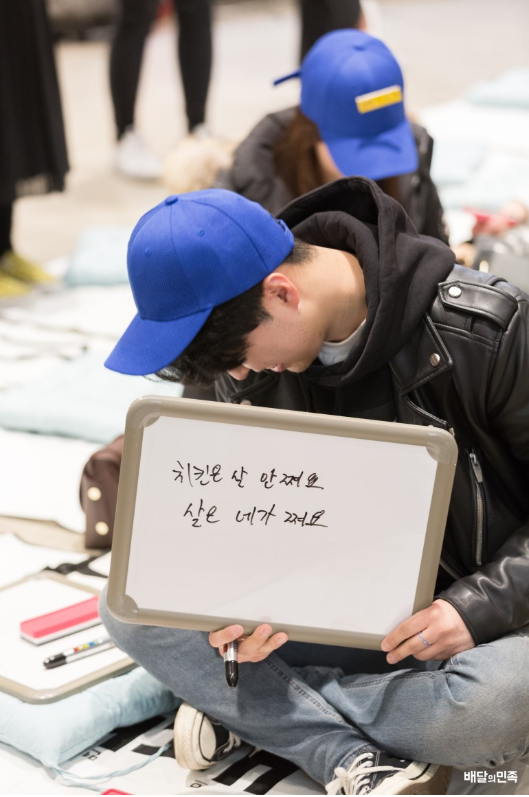 치킨은 살 안쪄요
살은 네가 쪄요
배달의민족